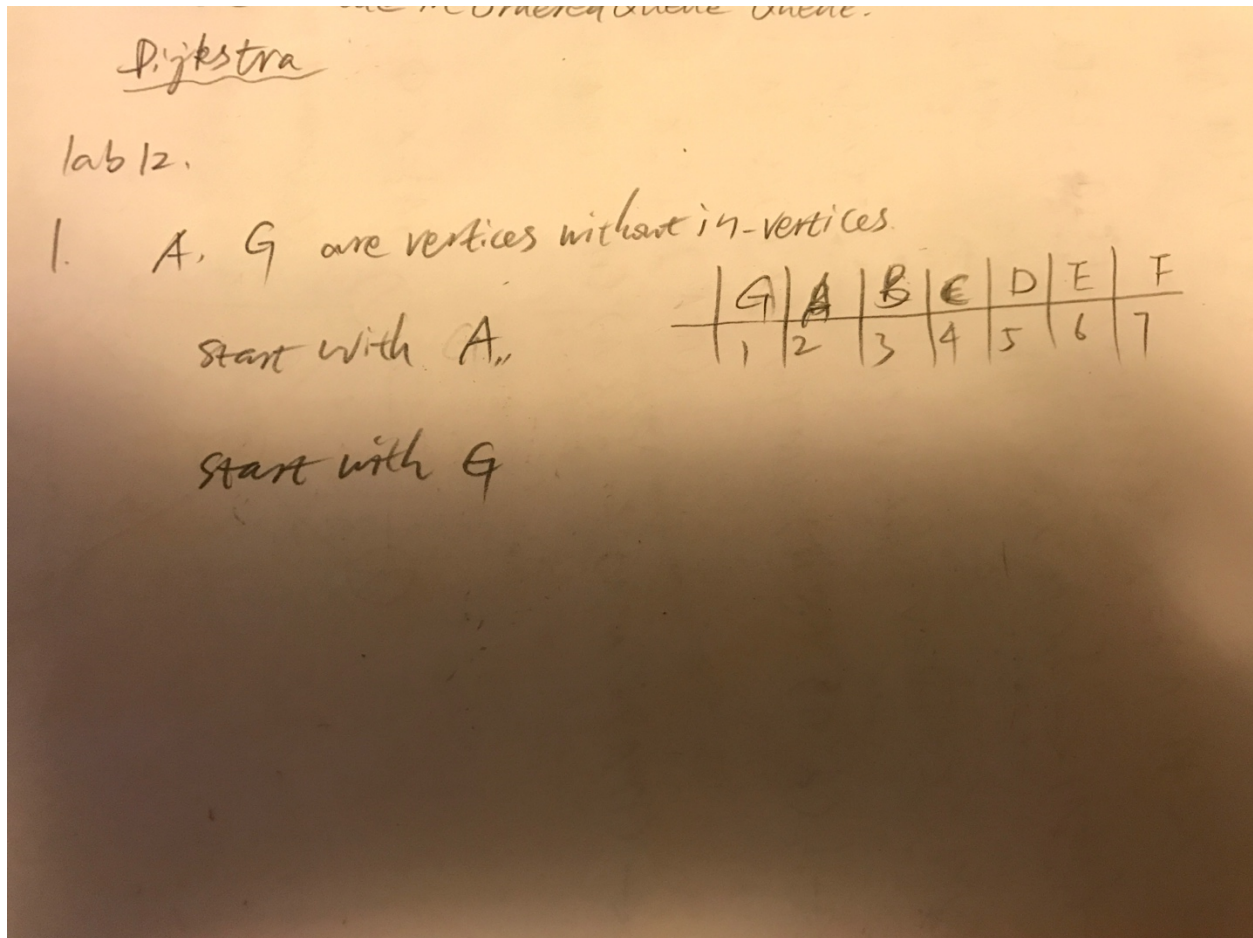 Dijkstra
lab 12.
1. A, G are vertices without in-vertices.
G A B C D E F
start with A,,
1 2 3 4 5 6 7
start with G